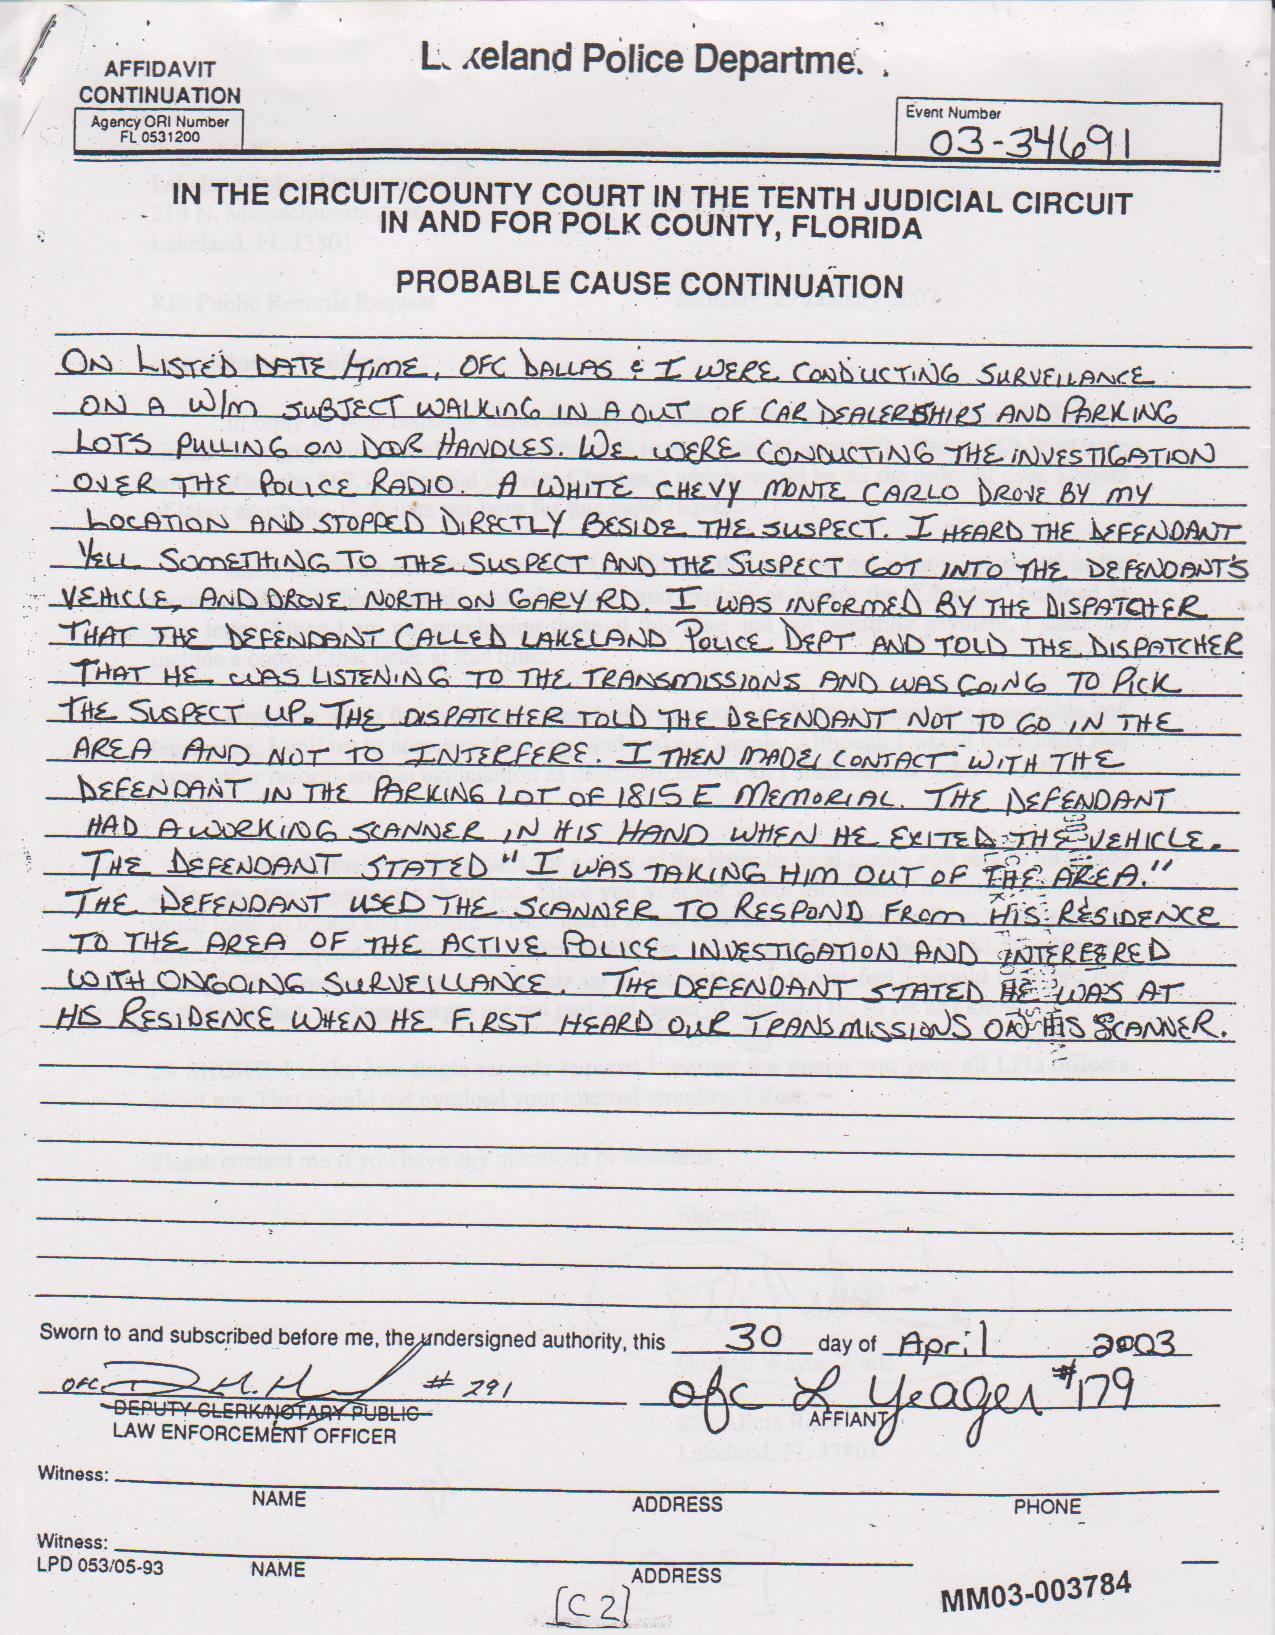 Lakeland Police Departme
AFFIDAVIT
CONTINUATION
Agency ORI Number
FL 0531200
Event Number
03-34691
IN THE CIRCUIT/COUNTY COURT IN THE TENTH JUDICIAL CIRCUIT
IN AND FOR POLK COUNTY, FLORIDA
PROBABLE CAUSE CONTINUATION
ON LISTED DATE/TIME, OFC DALLAS & I WERE CONDUCTING SURVEILANCE
ON A W/M SUBJECT WALKING IN A OUT OF CAR DEALERSHIPS AND PARKING
LOTS PULLING ON DOOR HANDLES. WE WERE CONDUCTING THE INVESTIGATION
OVER THE POLICE RADIO. A WHITE CHEVY MONTE CARLO DROVE BY MY
LOCATION AND STOPPED DIRECTLY BESIDE THE SUSPECT. I HEARD THE DEFENDANT
YELL SOMETHING TO THE SUSPECT AND THE SUSPECT GOT INTO THE DEFENDANT'S
VEHICLE, AND DROVE NORTH ON GARY RD. I WAS INFORMED BY THE DISPATCHER
THAT THE DEFENDANT CALLED LAKELAND POLICE DEPT AND TOLD THE DISPATCHER
THAT HE WAS LISTENING TO THE TRANSMISSIONS AND WAS GOING TO PICK
THE SUSPECT UP. THE DISPATCHER TOLD THE DEFENDANT NOT TO GO IN THE
AREA AND NOT TO INTERFERE. I THEN MADE CONTACT WITH THE
DEFENDANT IN THE PARKING LOT OF 1815 E MEMORIAL. THE DEFENDANT
HAD A WORKING SCANNER IN HIS HAND WHEN HE EXITED THE VEHICLE.
THE DEFENDANT STATED "I WAS TAKING HIM OUT OF THE AREA."
THE DEFENDANT USED THE SCANNER TO RESPOND FROM HIS RESIDENCE
TO THE AREA OF THE ACTIVE POLICE INVESTIGATION AND INTERFERED
WITH ONGOING SURVEILLANCE. THE DEFENDANT STATED HE WAS AT
HIS RESIDENCE WHEN HE FIRST HEARD OUR TRANSMISSIONS ON HIS SCANNER.
Sworn to and subscribed before me, the undersigned authority, this 30 day of April 2003
OFC # 291
Ofc L Yeager #179
DEPUTY CLERK/NOTARY PUBLIC
AFFIANT
LAW ENFORCEMENT OFFICER
Witness:
NAME ADDRESS PHONE
Witness:
LPD 053/05-93 NAME ADDRESS
[C 2]
MM03-003784